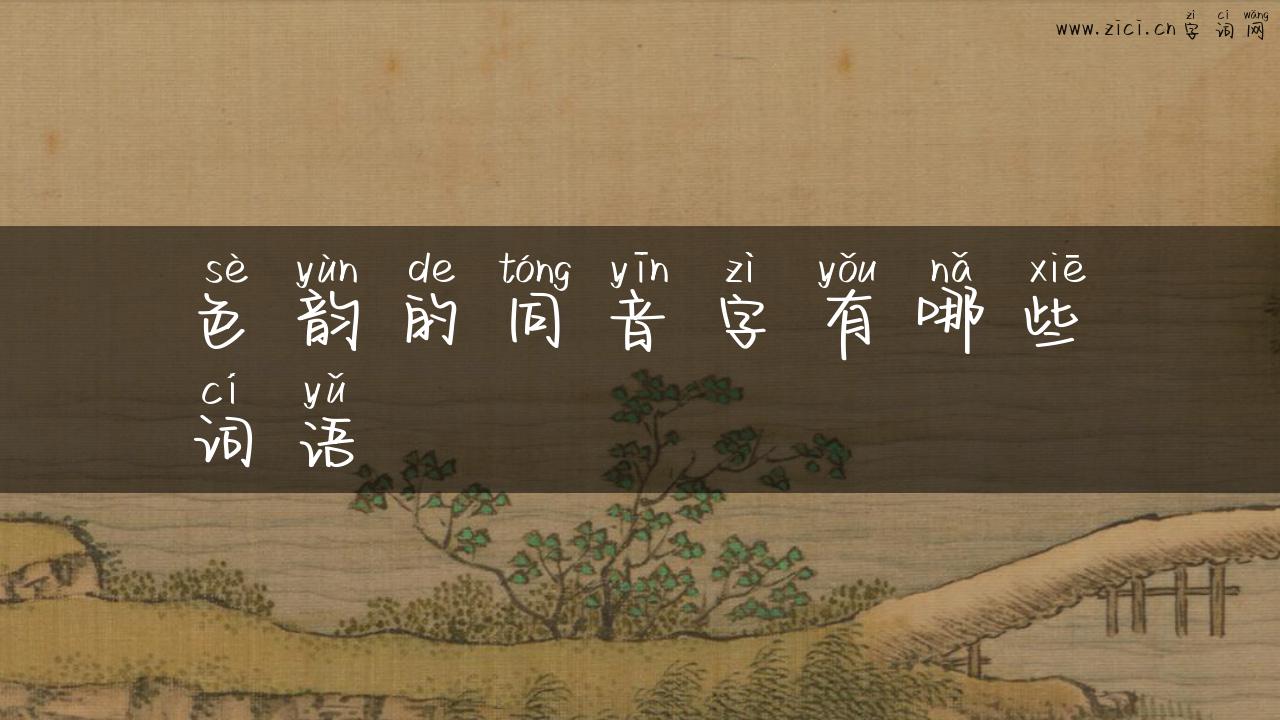 zì cí wǎng
www.zici.cn 字词网
sè yùn de tóng yīn zì yǒu nǎ xiē
色韵的同音字有哪些
cí yǔ
词语